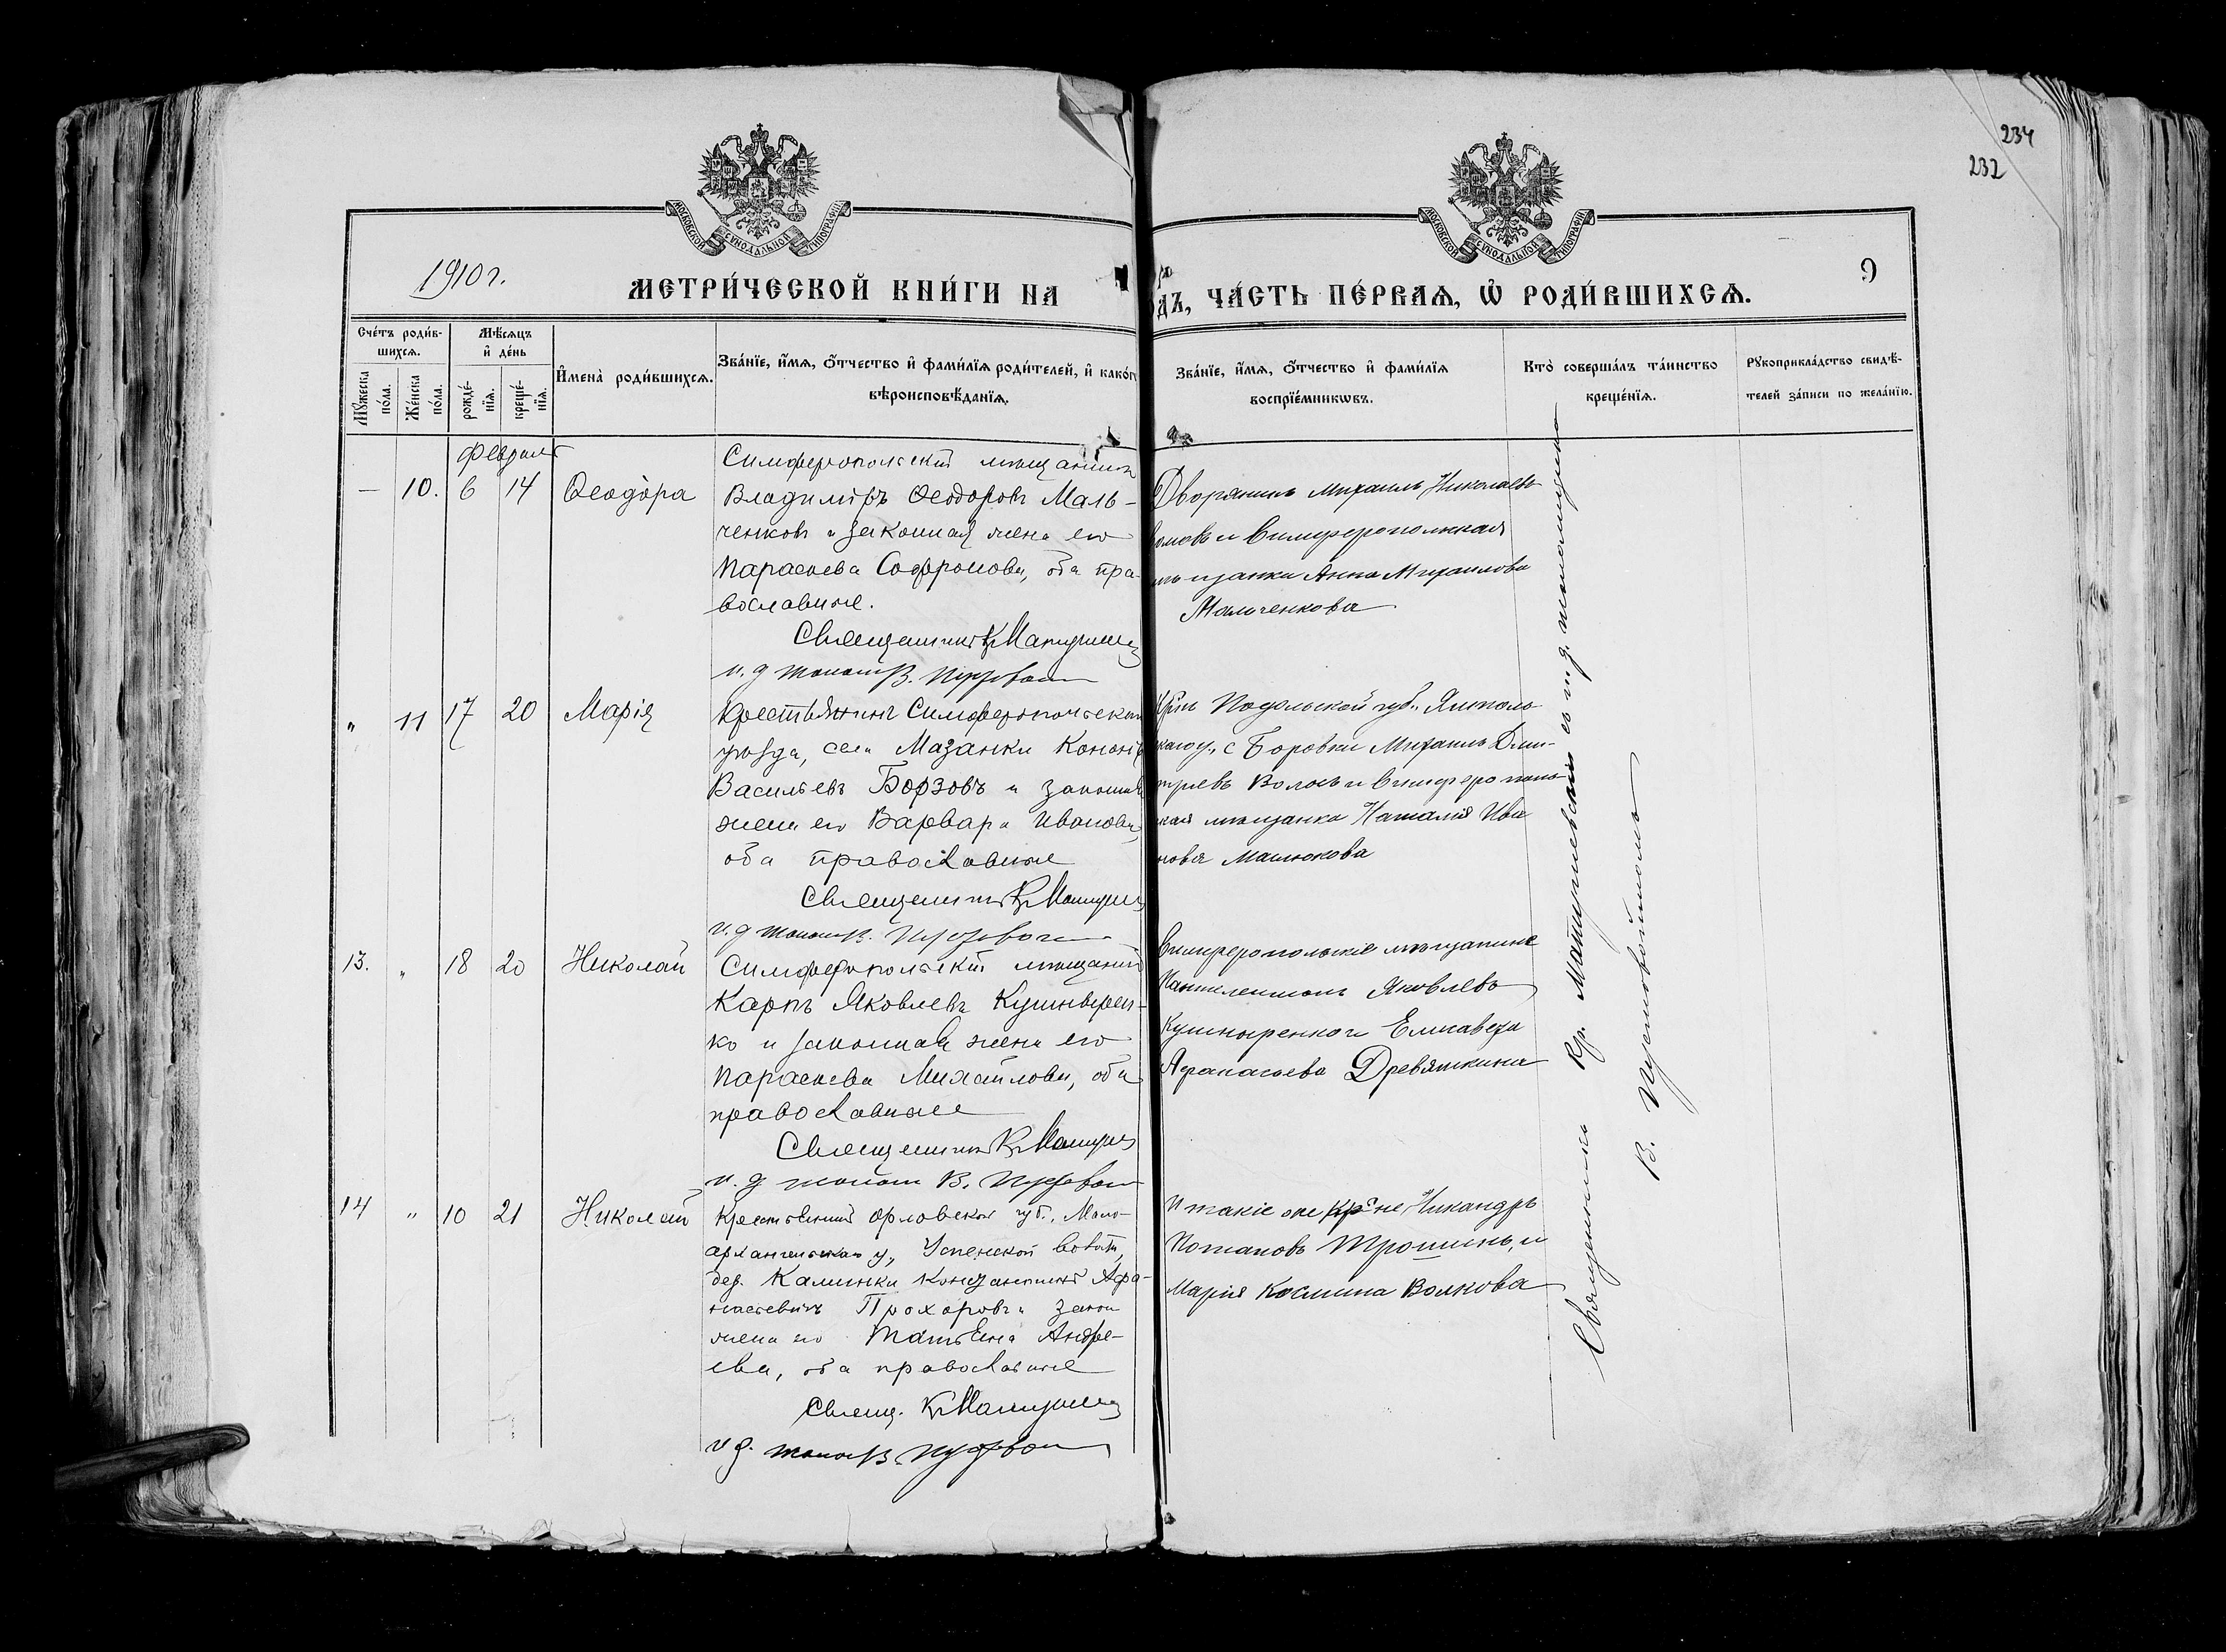 234
232
МОСКОВСКОЙ СѴНОДАЛЬНОЙ ТИПОГРАФІИ
МОСКОВСКОЙ СѴНОДАЛЬНОЙ ТИПОГРАФІИ
1910 г.
9
МЕТРИ́ЧЕСКОЙ КНИ́ГИ НА
ДЪ, ЧА́СТЬ ПЕ́РВАѦ, Ѡ҆ РОДИ́ВШИХСѦ.
Сче́тъ роди́в-
шихсѧ.
Мꙋ́жеска по́ла.
Же́нска по́ла.
Мѣ́сѧцъ
и҆ де́нь
рожде́-
нїѧ.
креще́-
нїѧ.
И҆мена̀ роди́вшихсѧ.
Зва́нїе, и҆́мѧ, ѻ҆́тчество и҆ фами́лїѧ роди́телей, и҆ како́г
вѣроисповѣ́данїѧ.
Зва́нїе, и҆́мѧ, ѻ҆́тчество и҆ фами́лїѧ
воспрїе́мникѡвъ.
Кто̀ соверша́лъ та́инство
креще́нїѧ.
Рꙋкоприкла́дство свидѣ́-
телей за́писи по жела́нїю.
Февраль
— 10. 6 14 Ѳеодора
Симферопольскій мѣщанинъ
Владиміръ Ѳеодоровъ Маль-
ченковъ и законная жена его
Параскева Софронова, оба пра-
вославные.
Священникъ К Мацушев
и. д. псалом В.
Дворянинъ Михаилъ Николаевъ
и Симферопольская
мѣщанка Анна Михаилова
Мальченкова
" 11 17 20 Марія
Крестьянинъ Симферопольскаго
уѣзда, села Мазанки Кононъ
Васильевъ Борзовъ и законная
жена его Варвара Иванова,
оба православные
Священникъ К
и. д. псалом В.
Крнъ Подольской губ., Ямполь
скаго у., с Боровки Михаилъ Дми-
тріевъ Волокъ и Симферополь
ская мѣщанка Наталія Ива
нова Маслюкова
13. " 18 20 Николай
Симферопольскій мѣщанинъ
Карпъ Яковлевъ Кушнырен-
ко и законная жена его
Параскева Михайлова, оба
православные
Священникъ К
и. д. псалом В.
Симферопольскіе мѣщанине
Пантелеимонъ Яковлевъ
Кушныренко и Елисавета
Афанасьева Древяткина
14 " 10 21 Николай
Крестьянинъ Орловской губ., Мало-
архангельскаго у., Успенской волости,
дер. Калинки Константинъ Афа-
насьевичъ Прохоровъ и закон
жена его Татьяна Андре-
ева, оба православные
Свящ. К
и. д. псалом В.
И такіе же крⷭне Никандръ
Потаповъ Трошинъ, и
Марія Космина Волкова
Священникъ Кр. съ и. д. псаломщика
В.